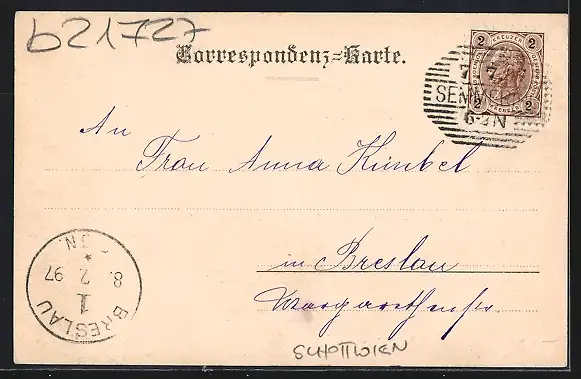 b21727
Correspondenz-Karte.
2 KREUZER 2
2 2
SEMM
6-7N
An
Frau Anna Künbel
in Breslau
Margarethenstr.
8. 7. 97
1
BRESLAU
SCHOTTWIEN